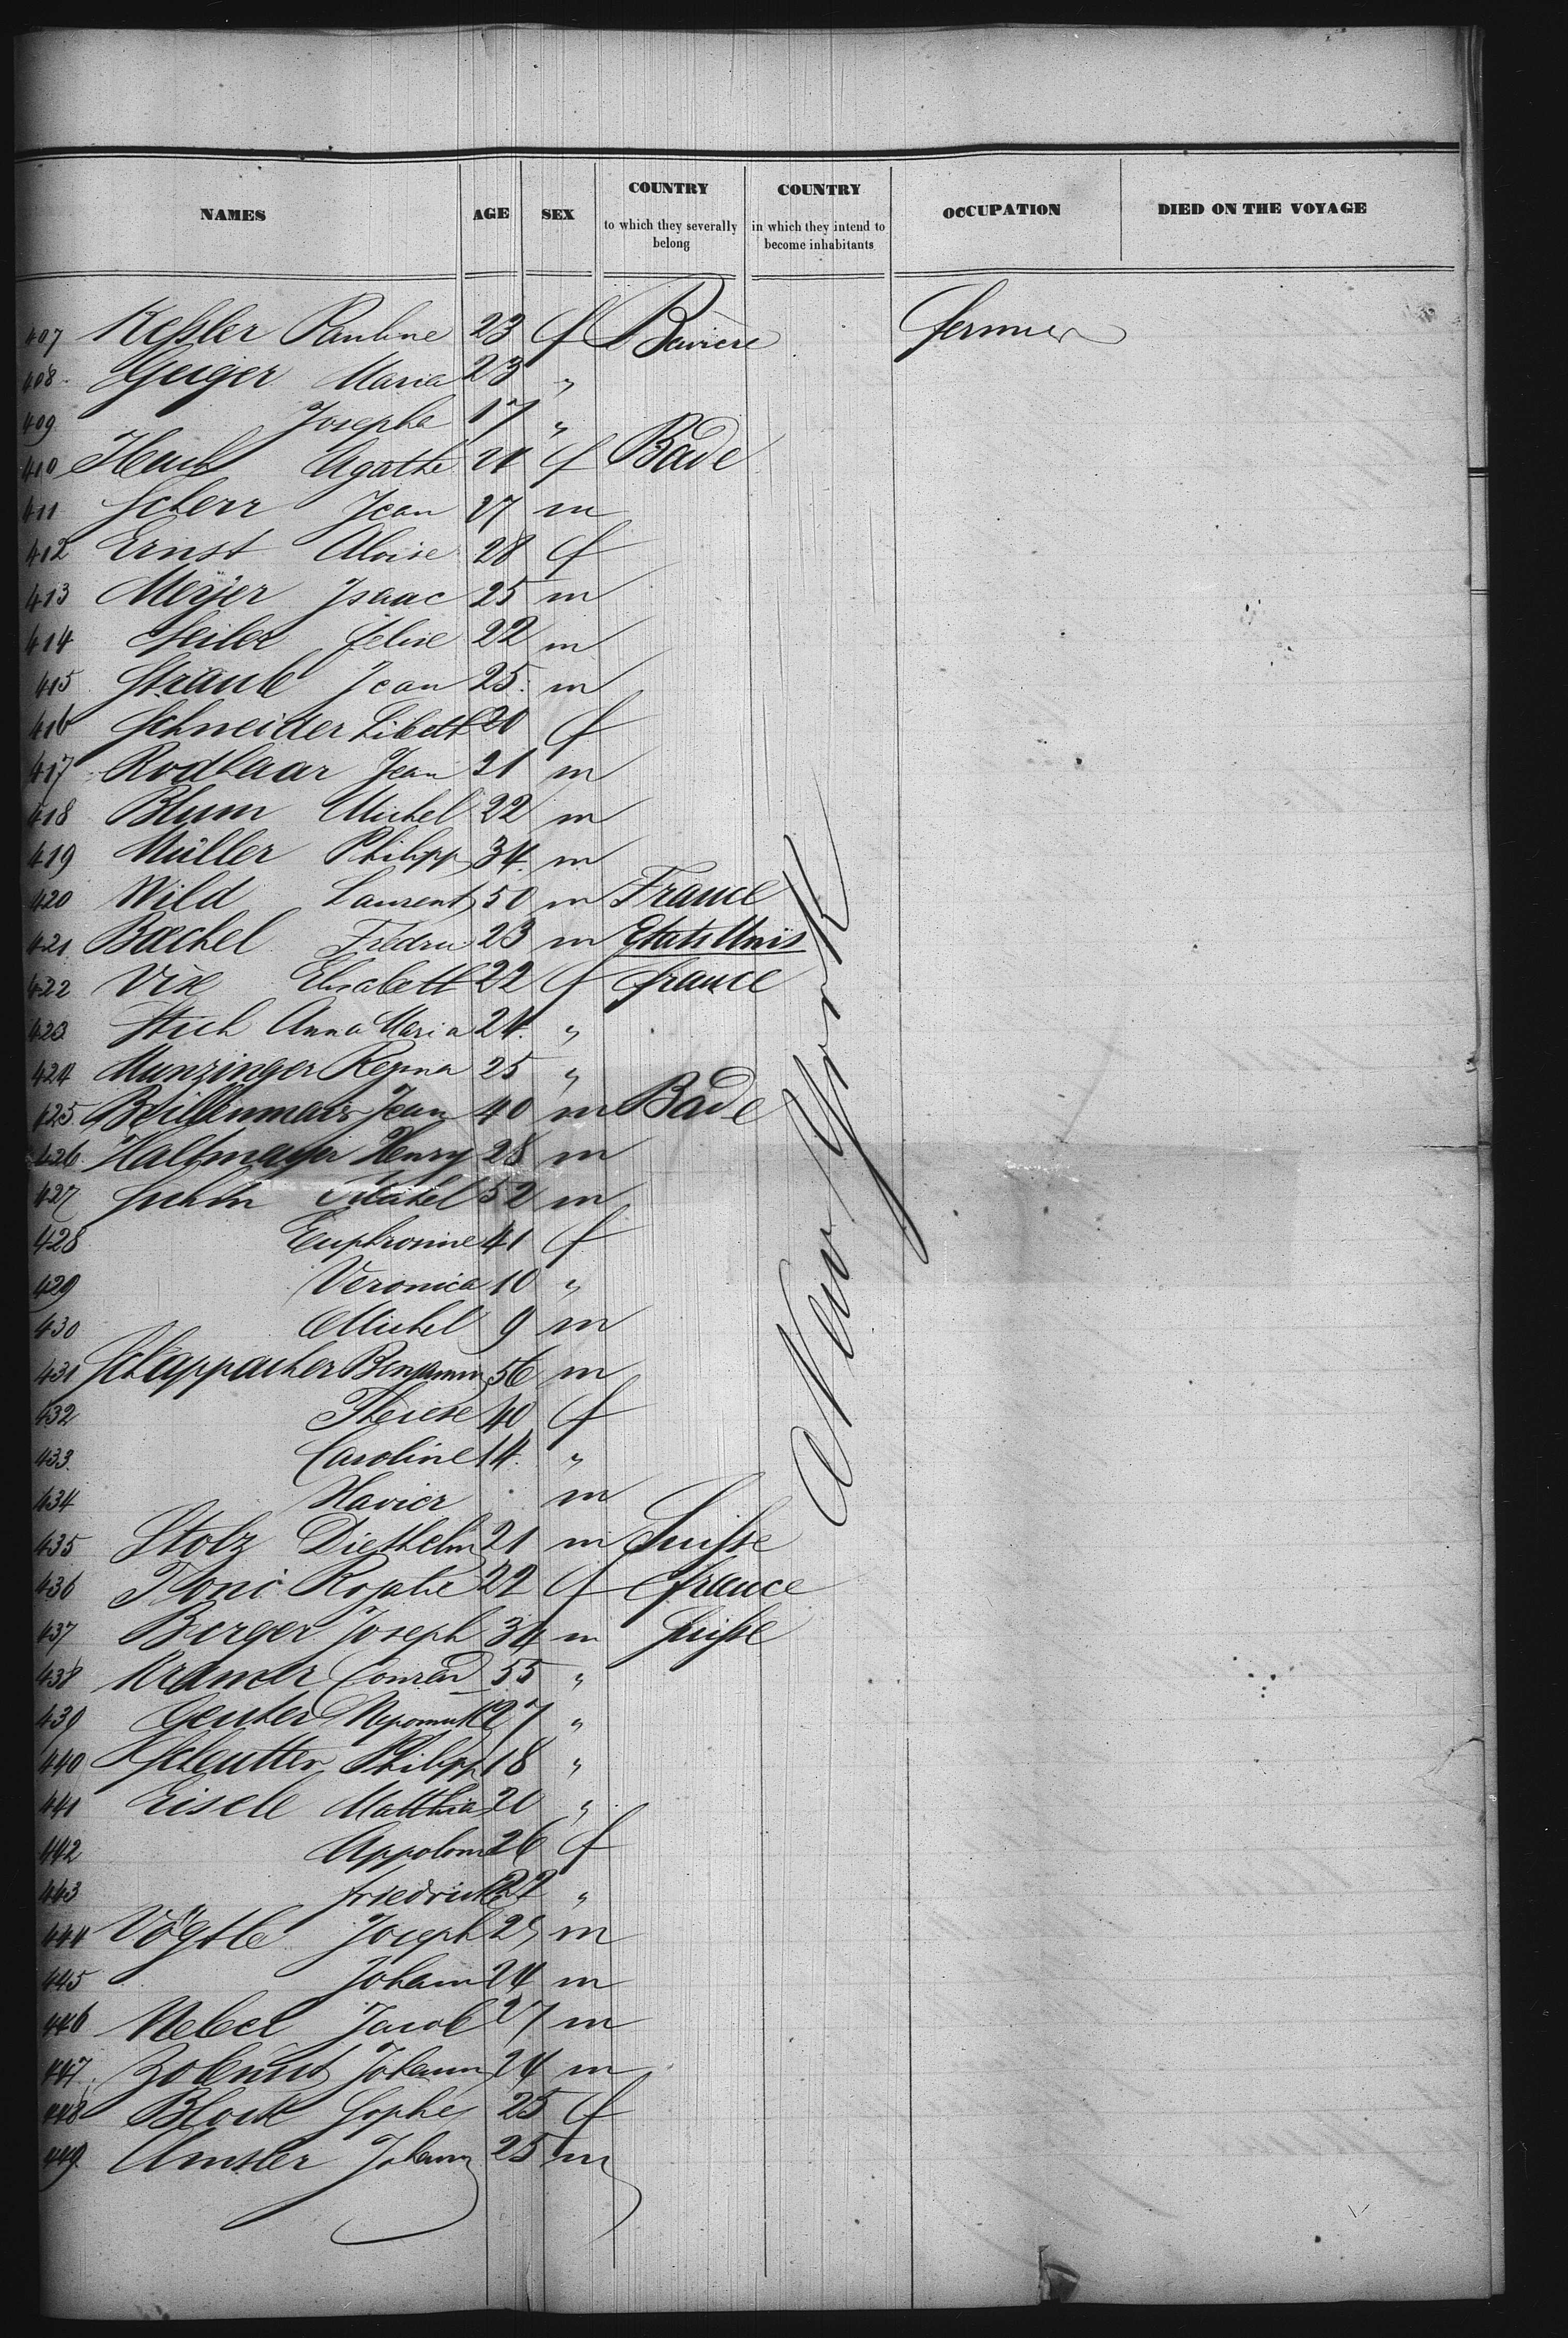 NAMES AGE SEX COUNTRY to which they severally belong COUNTRY in which they intend to become inhabitants OCCUPATION DIED ON THE VOYAGE
407 Keßler Pauline 23 f Baviere fermier
408 Geiger Maria 23 "
409 Josepha 17 "
410 Agathe 20 f Bade
411 Scherr Jean 27 m
412 Ernst Aloise 28 f
413 Meyer Isaac 25 m
414 Seiler felixe 22 m
415 Straub Jean 25 m
416 Schneider Libeth 20 f
417 Rodhaar Jean 21 m
418 Blum Michel 22 m
419 Müller Philipp 34 m
420 Wild Laurent 50 m France
421 Bæchel Frédric 23 m Etats Unis
422 Vix Elisabeth 22 f france
423 Stich Anna Maria 24 "
424 Munzinger Regina 25 "
425 Jean 40 m Bade
426 Halfmayer Henry 28 m
427 Michel 52 m
428 Euphrosine 41 f
429 Veronica 10 "
430 Michel 9 m
431 Schappacher Benjamin 56 m
432 Therese 40 f
433 Caroline 14 "
434 Xavier m
435 Stolz Diethelm 21 m Suiße
436 Thoni Rosalie 22 f france
437 Burger Joseph 34 m Suiße
438 Kramer Conrad 55 "
439 Geuter Nepomuk 27 "
440 Scheutter Philipp 18 "
441 Eisele Matthias 20 "
442 Appolonia 26 f
443 friedricke 22 "
444 Vögtle Joseph 29 m
445 Johann 24 m
446 Nebel Jacob 27 m
447 Johann 24 m
448 Block Sophe 25 f
449 Amsler Johann 25 m
a New York